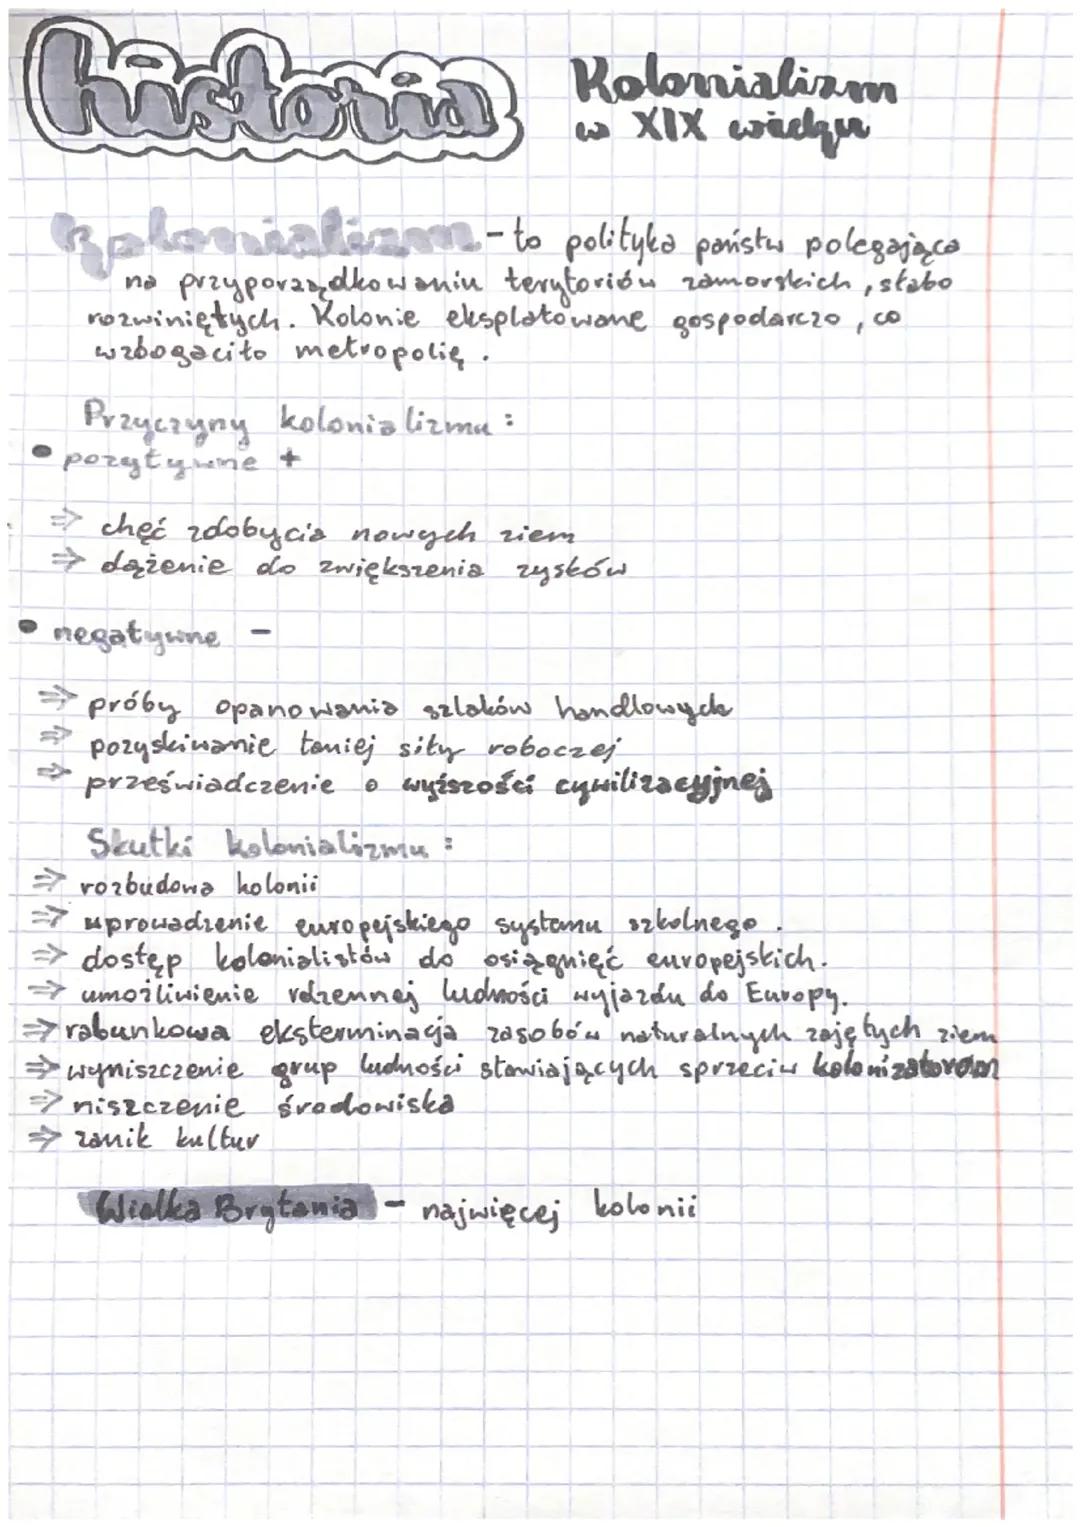 historia
Kolonializm
w XIX wieku
Kolonializm - to polityka państw polegająca
na przyporządkowaniu terytoriów zamorskich, słabo
rozwiniętych. Kolonie eksplatowane gospodarczo, co
wzbogaciło metropolię.
Przyczyny kolonializmu:
• pozytywne +
⇒ chęć zdobycia nowych ziem
⇒ dążenie do zwiększenia zysków
• negatywne -
⇒ próby opanowania szlaków handlowych
⇒ pozyskiwanie taniej siły roboczej
⇒ przeświadczenie o wyższości cywilizacyjnej
Skutki kolonializmu:
⇒ rozbudowa kolonii
⇒ wprowadzenie europejskiego systemu szkolnego.
⇒ dostęp kolonialistów do osiągnięć europejskich.
⇒ umożliwienie rdzennej ludności wyjazdu do Europy.
⇒ rabunkowa eksterminacja zasobów naturalnych zajętych ziem
⇒ wyniszczenie grup ludności stawiających sprzeciw kolonizatorom
⇒ niszczenie środowiska
⇒ zanik kultur
Wielka Brytania - najwięcej kolonii